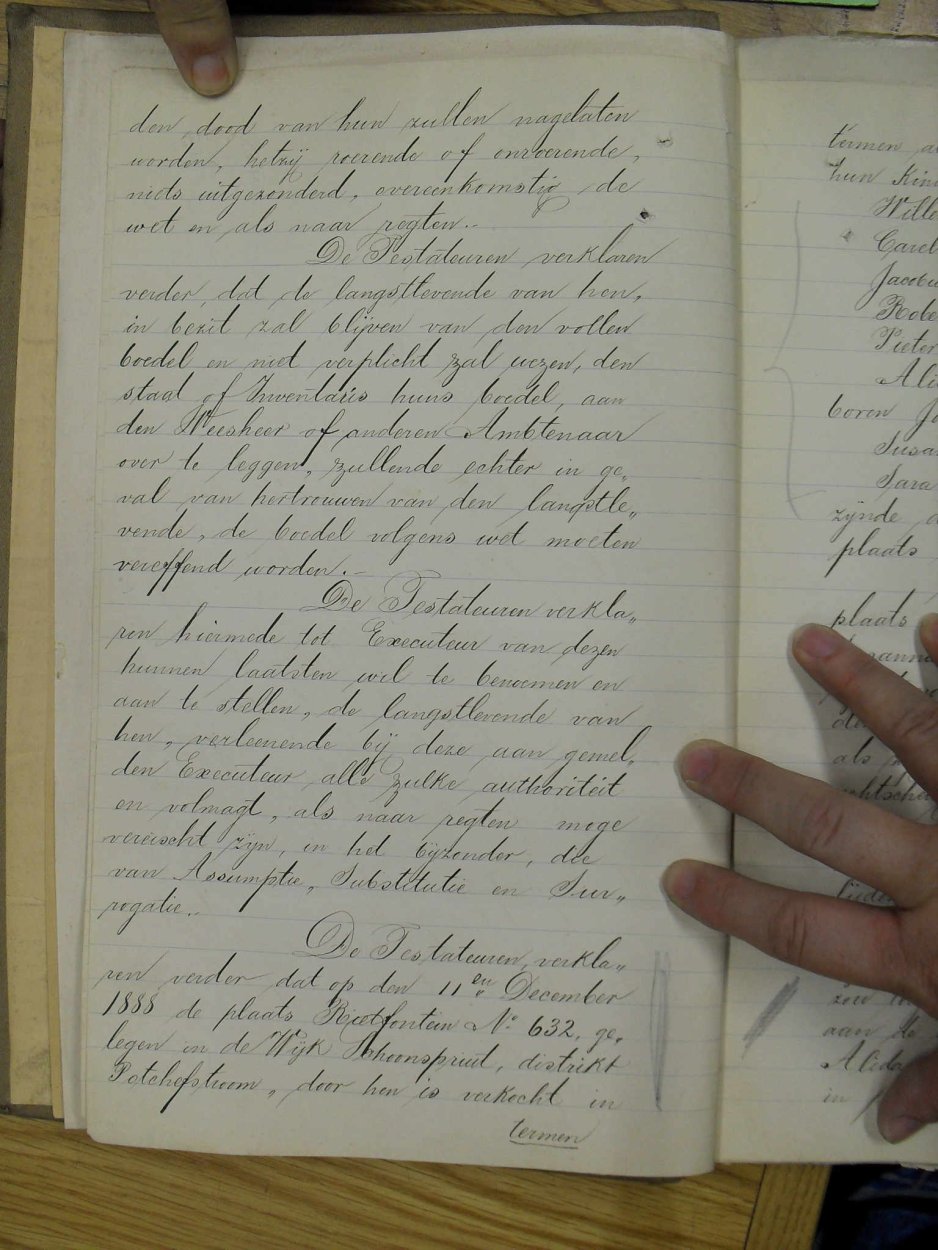 den dood van hun zullen nagelaten
worden, hetzij roerende of onroerende,
niets uitgezonderd, overeenkomstig de
wet en als naar regten.-
De Testateuren verklaren
verder, dat de langstlevende van hen,
in bezit zal blijven van den vollen
boedel en niet verplicht zal wezen, den
staat of Inventaris huns boedel, aan
den Weesheer of anderen Ambtenaar
over te leggen, zullende echter in ge„
val van hertrouwen van den langstle„
vende, de boedel volgens wet moeten
vereffend worden.-
De Testateuren verkla„
ren hiermede tot Executeur van dezen
hunnen laatsten wil te benoemen en
aan te stellen, de langstlevende van
hen, verleenende bij deze aan gemel„
den Executeur alle zulke authoriteit
en volmagt, als naar regten moge
vereischt zijn, in het bijzonder, die
van Assumptie, Substitutie en Sur„
rogatie.-
De Testateuren, verkla„
ren verder dat op den 11en December
1888 de plaats Rietfontein No. 632, ge„
legen in de Wijk Schoonspruit, distrikt
Potchefstroom, door hen is verkocht in
termen
termen
hun Kin
Wille
Carel
Jacobu
Robe
Pieter
Alid
boren Jo
Susa
Sara
zijnde
plaats
plaats
als
aan de
Alida
in